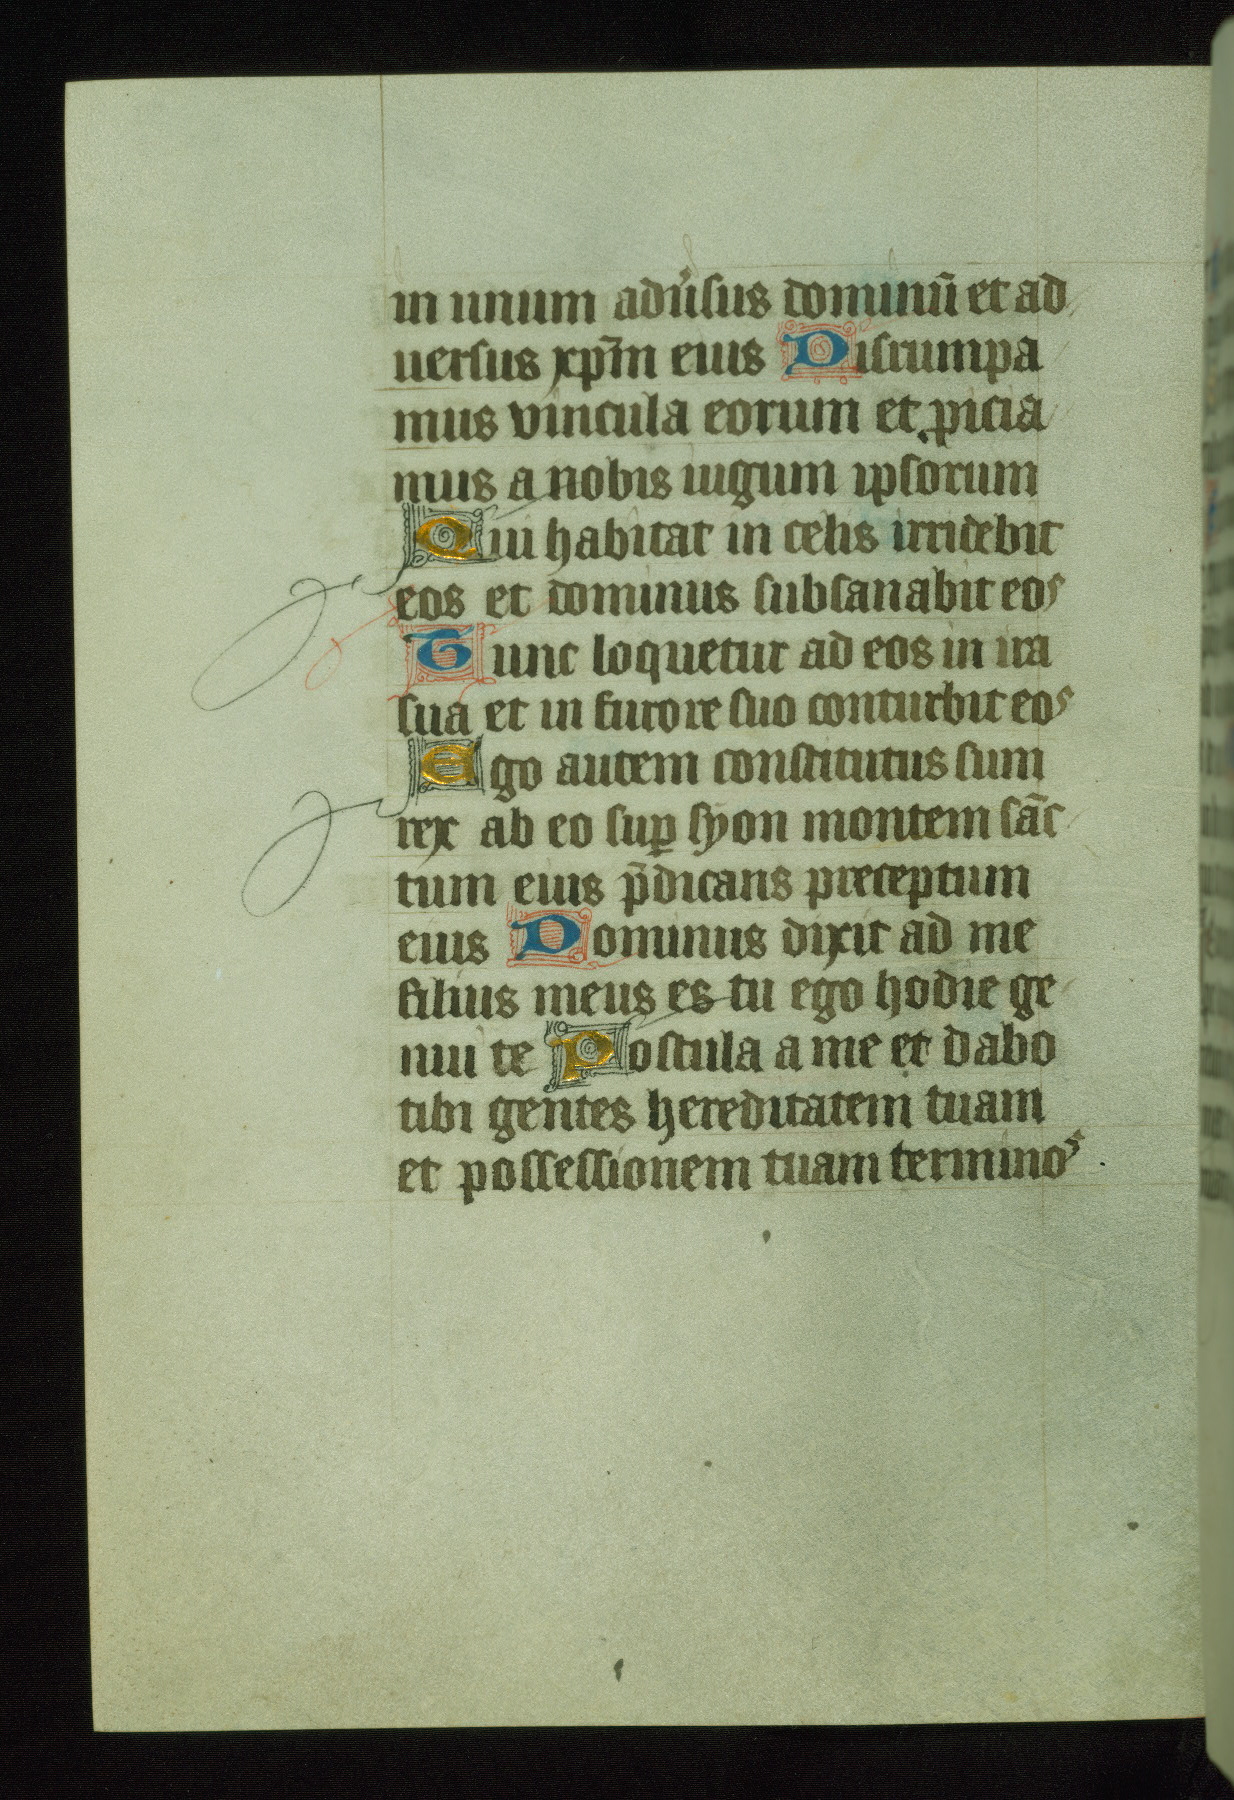 in unum adu͛sus dominū et ad
uersus xp̄m eius Disrumpa
mus vincula eorum et ꝓicia
mus a nobis iugum ipsorum
Qui habitat in celis irridebit
eos et dominus subsanabit eos
Tunc loquetur ad eos in ira
sua et in furore suo conturbit eos
Ego autem constitutus sum
rex ab eo suꝑ syon montem sāc
tum eius p̄dicans preceptum
eius Dominus dixit ad me
filius meus es tu ego hodie ge
nui te Postula a me et dabo
tibi gentes hereditatem tuam
et possessionem tuam terminos